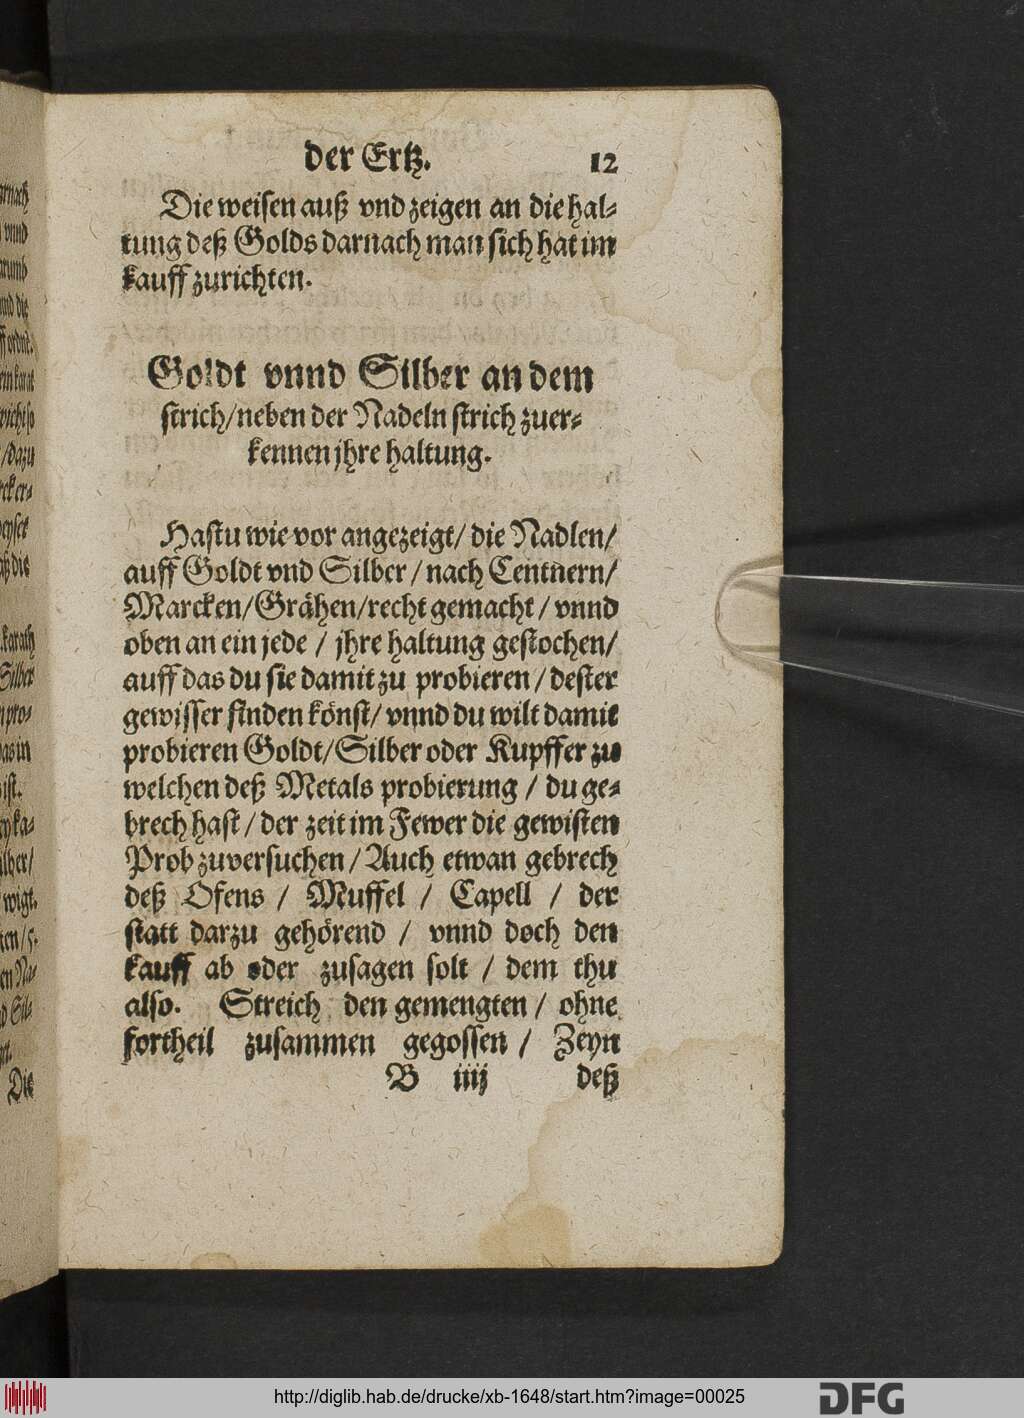 der Ertz. 12
Die weisen auß vnd zeigen an die hal⸗
tung deß Golds darnach man sich hat im
kauff zurichten.
Goldt vnnd Silber an dem
strich/neben der Nadeln strich zuer⸗
kennen jhre haltung.
Hastu wie vor angezeigt/ die Nadlen/
auff Goldt vnd Silber / nach Centnern/
Marcken/Grähen/recht gemacht / vnnd
oben an ein jede / jhre haltung gestochen/
auff das du sie damit zu probieren / dester
gewisser finden könst/ vnnd du wilt damit
probieren Goldt/Silber oder Kupffer zu
welchen deß Metals probierung / du ge⸗
brech hast / der zeit im Fewer die gewisten
Prob zuversuchen / Auch etwan gebrech
deß Ofens / Muffel / Capell / der
statt darzu gehörend / vnnd doch den
kauff ab oder zusagen solt / dem thu
also. Streich den gemengten / ohne
fortheil zusammen gegossen / Zeyn
B iiij deß
Die
http://diglib.hab.de/drucke/xb-1648/start.htm?image=00025
DFG